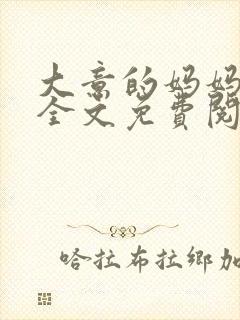 大意的妈妈
全文免費閱
哈拉布拉鄉加